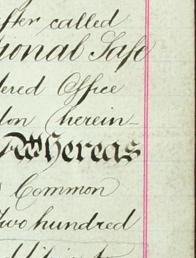 after called
ional Safe
ered Office
don (herein-
Whereas
Common
Two hundred